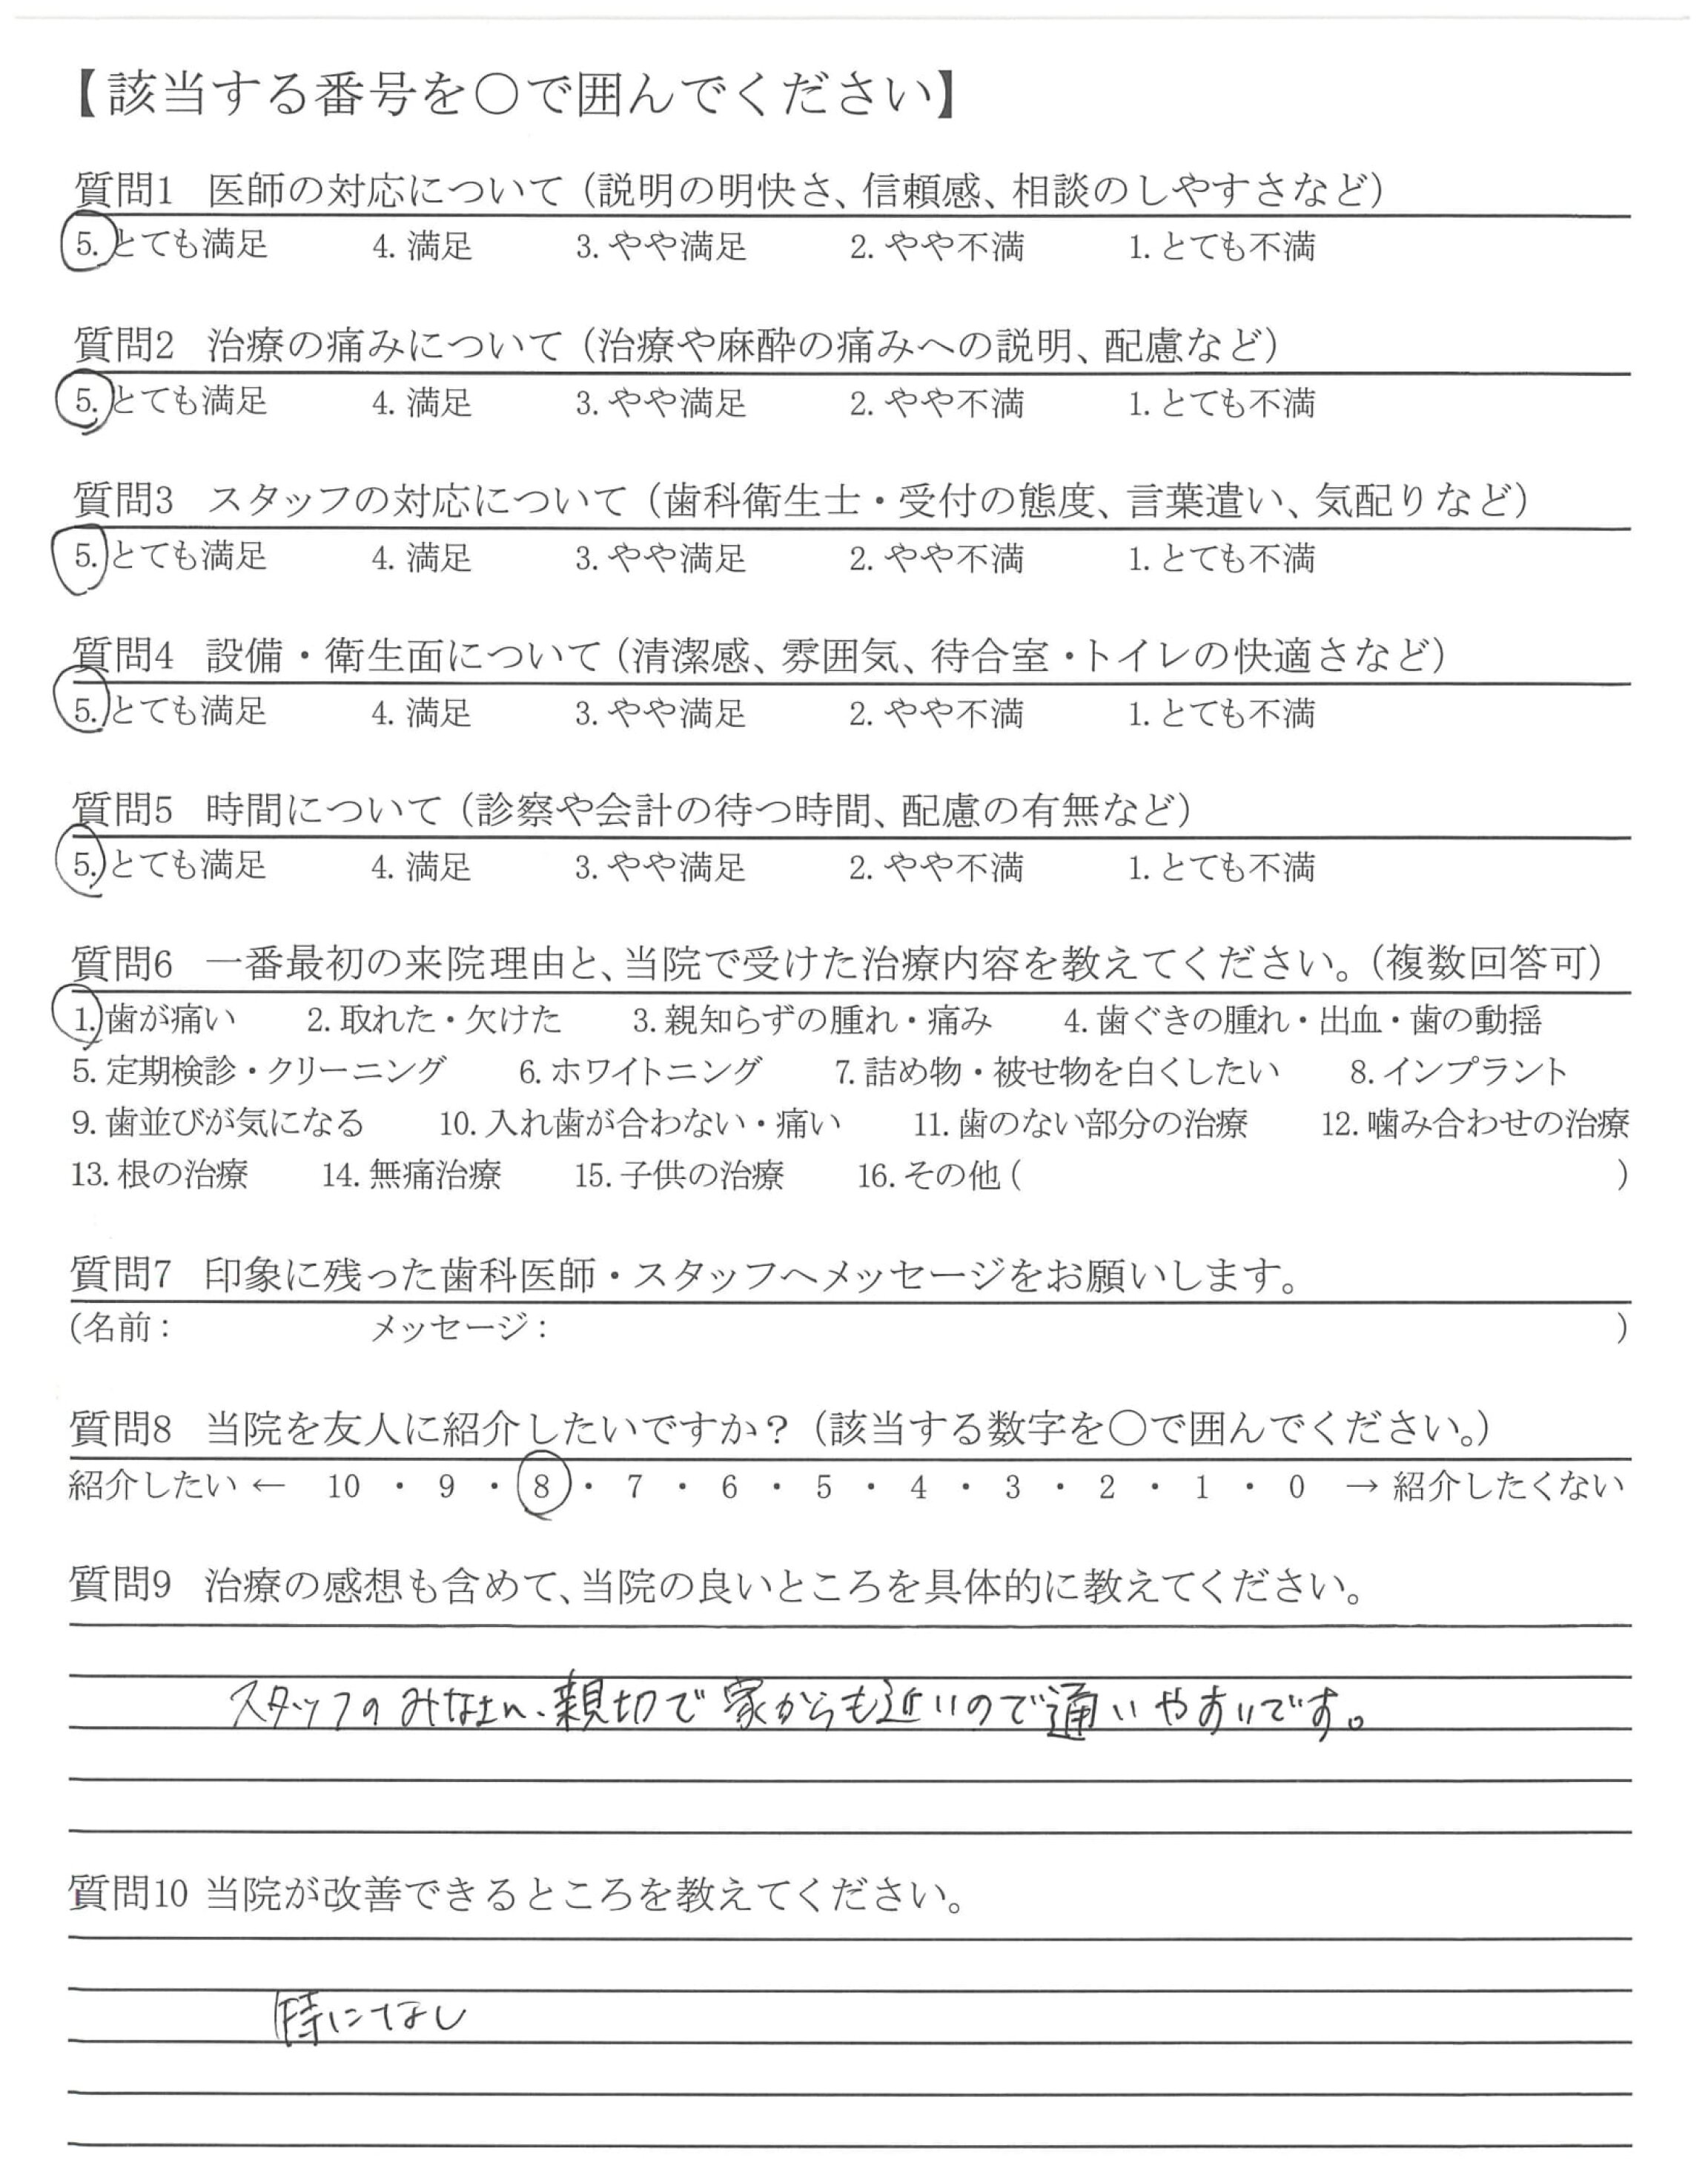 【該当する番号を○で囲んでください】
質問1 医師の対応について（説明の明快さ、信頼感、相談のしやすさなど）
5. とても満足 4. 満足 3. やや満足 2. やや不満 1. とても不満
質問2 治療の痛みについて（治療や麻酔の痛みへの説明、配慮など）
5. とても満足 4. 満足 3. やや満足 2. やや不満 1. とても不満
質問3 スタッフの対応について（歯科衛生士・受付の態度、言葉遣い、気配りなど）
5. とても満足 4. 満足 3. やや満足 2. やや不満 1. とても不満
質問4 設備・衛生面について（清潔感、雰囲気、待合室・トイレの快適さなど）
5. とても満足 4. 満足 3. やや満足 2. やや不満 1. とても不満
質問5 時間について（診察や会計の待つ時間、配慮の有無など）
5. とても満足 4. 満足 3. やや満足 2. やや不満 1. とても不満
質問6 一番最初の来院理由と、当院で受けた治療内容を教えてください。（複数回答可）
1. 歯が痛い 2. 取れた・欠けた 3. 親知らずの腫れ・痛み 4. 歯ぐきの腫れ・出血・歯の動揺
5. 定期検診・クリーニング 6. ホワイトニング 7. 詰め物・被せ物を白くしたい 8. インプラント
9. 歯並びが気になる 10. 入れ歯が合わない・痛い 11. 歯のない部分の治療 12. 噛み合わせの治療
13. 根の治療 14. 無痛治療 15. 子供の治療 16. その他（ ）
質問7 印象に残った歯科医師・スタッフへメッセージをお願いします。
（名前： メッセージ： ）
質問8 当院を友人に紹介したいですか？（該当する数字を○で囲んでください。）
紹介したい ← 10 ・ 9 ・ 8 ・ 7 ・ 6 ・ 5 ・ 4 ・ 3 ・ 2 ・ 1 ・ 0 → 紹介したくない
質問9 治療の感想も含めて、当院の良いところを具体的に教えてください。
スタッフのみなさん、親切で家からも近いので通いやすいです。
質問10 当院が改善できるところを教えてください。
特になし